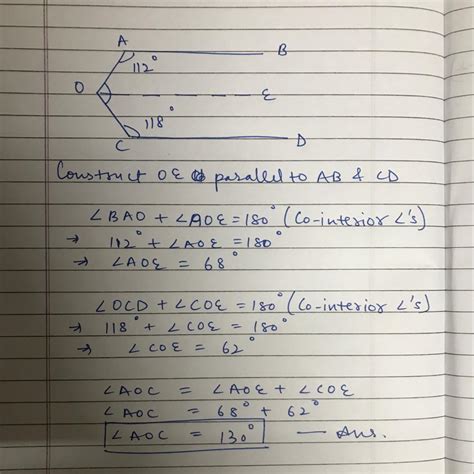 A B
112°
O E
118°
C D
Construct OE parallel to AB & CD
∠BAO + ∠AOE = 180° (Co-interior ∠'s)
→ 112° + ∠AOE = 180°
→ ∠AOE = 68°
∠OCD + ∠COE = 180° (Co-interior ∠'s)
→ 118° + ∠COE = 180°
→ ∠COE = 62°
∠AOC = ∠AOE + ∠COE
∠AOC = 68° + 62°
∠AOC = 130° — Ans.